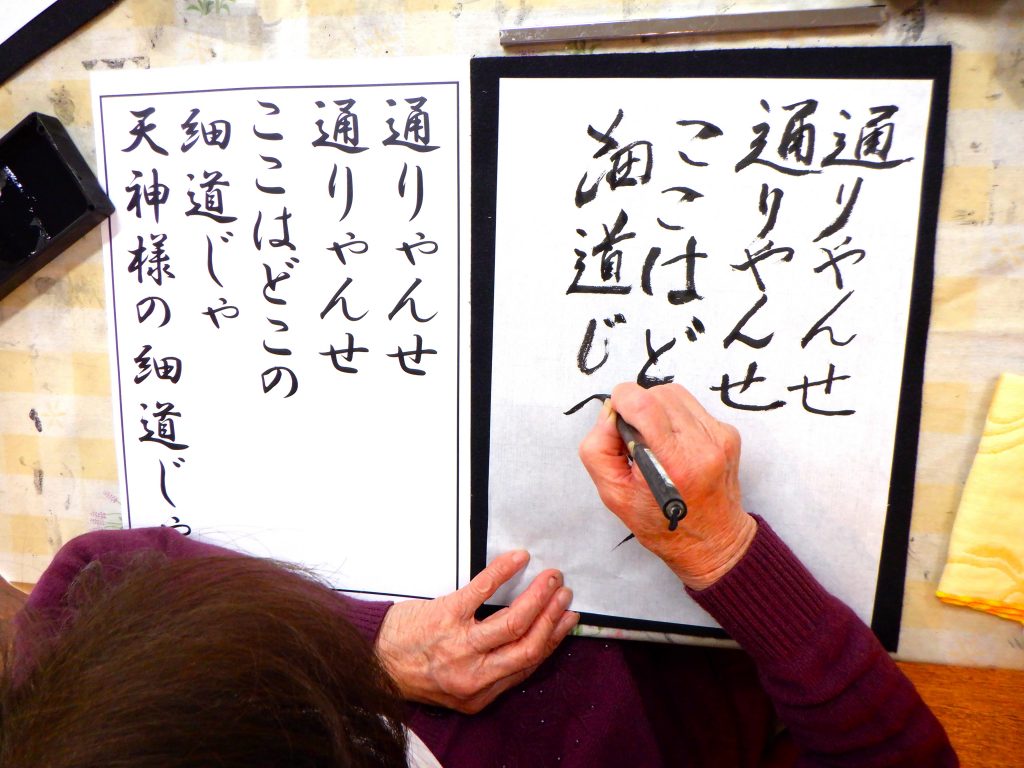 通りゃんせ
通りゃんせ
ここはど
細道じ
通りゃんせ
通りゃんせ
ここはどこの
細道じゃ
天神様の細道じゃ